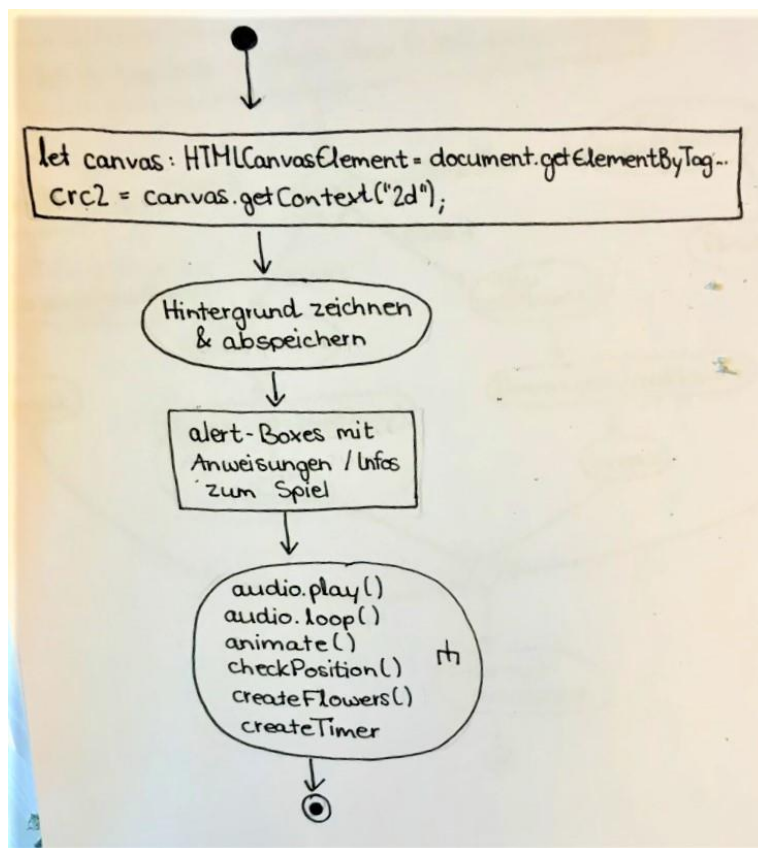 let canvas: HTMLCanvasElement = document.getElementByTag...
crc2 = canvas.getContext("2d");
Hintergrund zeichnen
& abspeichern
alert-Boxes mit
Anweisungen / Infos
zum Spiel
audio.play()
audio.loop()
animate()
checkPosition()
createFlowers()
createTimer